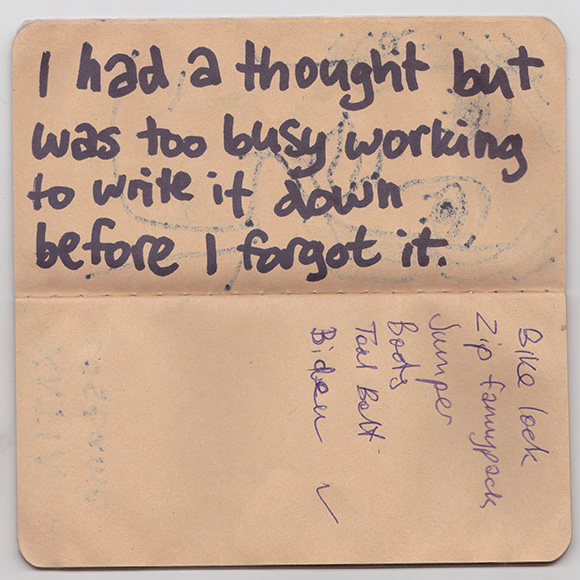 I had a thought but
was too busy working
to write it down
before I forgot it.
Bike lock
Zip fannypack
Jumper
Body
Tool Belt
Biden ✓